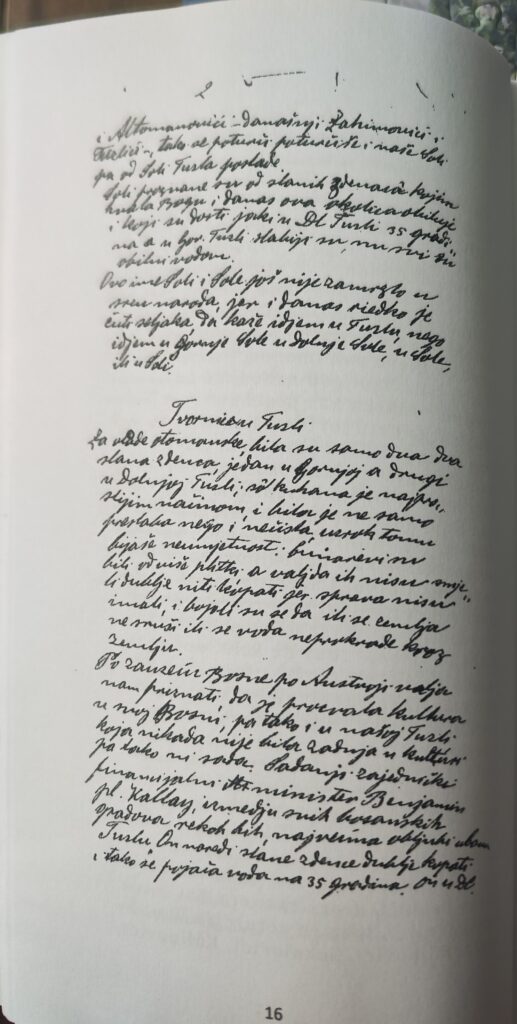 2
i Altomanovići – današnji Zahirovići i
Fazlići –, tako se poturči poturčiše i naše Soli
pa od Soli Tuzla postade.
Soli prozvane su od slanih zdenaca kojim
hvala Bogu i danas ova okolica obiluje
i koji su dosti jaki u Dl Tuzli 35 gradi„
na a u Gor. Tuzli slabiji su, nu svi su
obilni vodom.
Ovo ime Soli i Sole još nije zamrzlo u
srcu naroda, jer i danas riedko je
čuti seljaka, da kaže idjem u Tuzlu, nego
idjem u Gornje Sole u dolnje Sole, u Sole,
ili u Soli.
Tvornice u Tuzli
Za vlade otomanske, bila su samo dva dva
slana zdenca, jedan u Gornjoj a drugi
u dolnjoj Tuzli; sô kuhana je najpro„
stijim načinom, i bila je ne samo
preslaba nego i nečista, uzrok tomu
bijaše neumjetnost: bunarevi su
bili odviše plitki, a valjda ih nisu smje„
li dublje niti kopati jer sprava nisu
imali, i bojali su se da ili se zemlja
ne sruši ili se voda neprokrade kroz
zemlju.
Po zauzeću Bosne po Austriji valja
nam priznati, da je procvala kultura
u svoj Bosni, pa tako i u našoj Tuzli
koja nikada nije bila zadnja u kulturi
pa tako ni sada. Sadanji zajednički
financijalni ministar Benjamin
pl. Kallay, izmedju svih bosanskih
gradova rekoh bih, najvećma obljubi ubavu
Tuzlu On naredi slane zdence dublje kopati
i tako se pojača voda na 35 gradina. On u Dl.
16